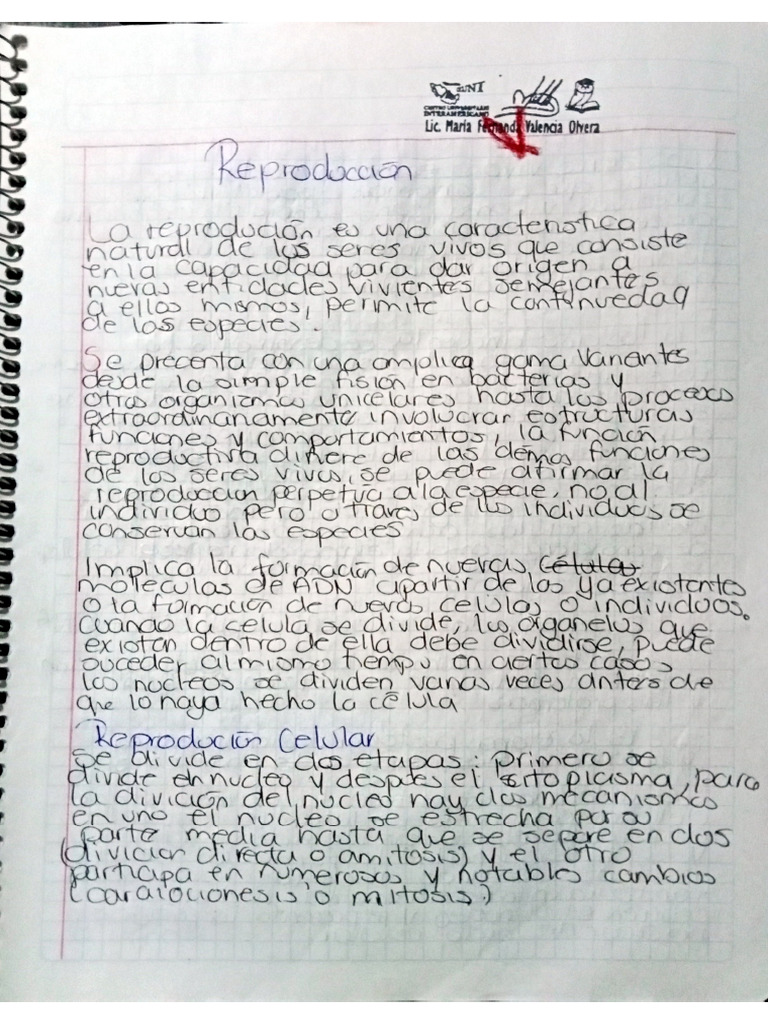 EUNI
CENTRO UNIVERSITARIO
INTERAMERICANO
Lic. María Fernanda Valencia Olvera
Reproducción
La reprodución es una caracteristica
natural de los seres vivos que consiste
en la capacidad para dar origen a
nuevas entidades vivientes semejantes
a ellos mismos, permite la continuedad
de las especies.
Se precenta con una amplica gama variantes
desde la simple fision en bacterias y
otros organizmos unicelares hasta los procesos
extraordinanamente involucrar estructuras
funciones y comportamientos, la función
reproductiva difiere de las demas funciones
de los seres vivos, se puede afirmar la
reproduccion perpetva a la especie, no al
individuo pero a traves de los individuos se
conservan las especies
Implica la formación de nuevas celulas
moleculas de ADN apartir de las ya existentes
o la formación de nuevas celulas o individuos.
Cuando la celula se divide, los organelos que
existen dentro de ella debe dividirse, puede
suceder al mismo tiempo en ciertos casos
los nucleos se dividen varias veces anters de
que lo haya hecho la célula
Reprodución Celular
Se divide en dos etapas: primero se
divide en nucleo y despues el citoplasma, para
la divición del nucleo hay dos mecanismos
en uno el nucleo se estrecha por su
parte media hasta que se separe en dos
(divicion directa o amitosis) y el otro
participa en numerosos y notables cambios
(caraiocionesis o mitosis.)